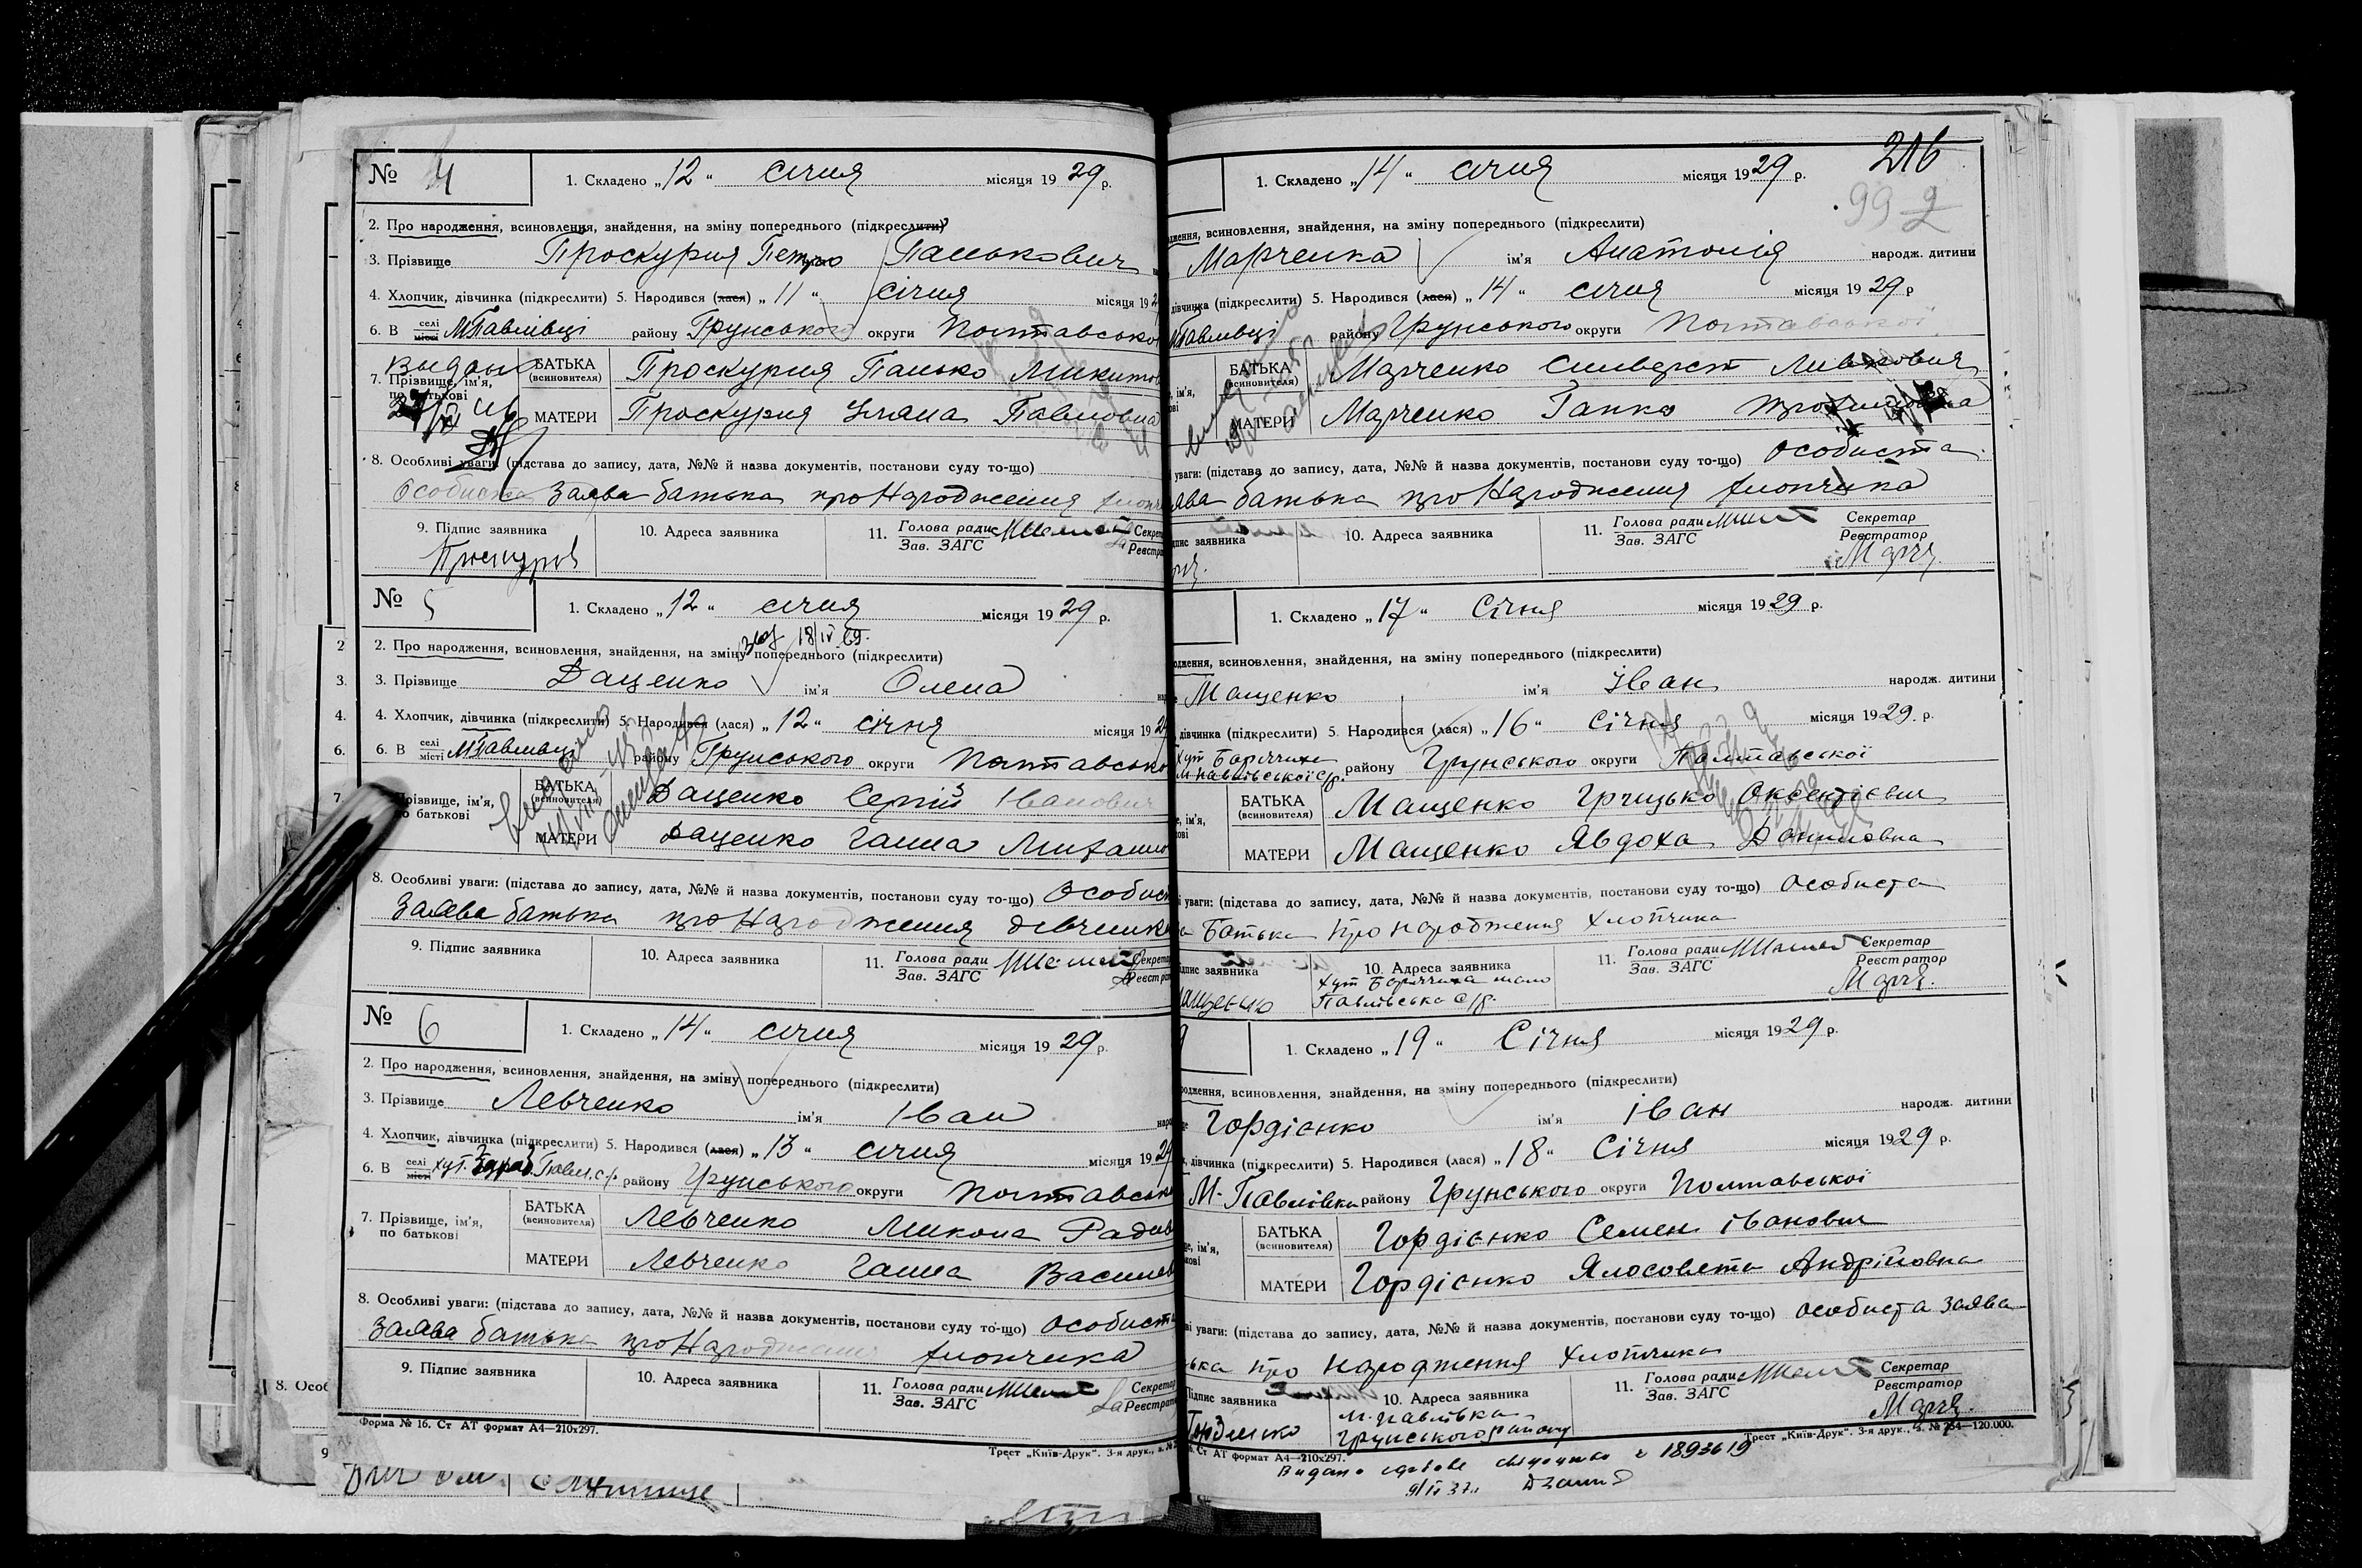 № 4
1. Складено „12“ січня місяця 1929 р.
2. Про народження, всиновлення, знайдення, на зміну попереднього (підкреслити)
3. Прізвище Проскурня Петро Панькович
4. Хлопчик, дівчинка (підкреслити) 5. Народився (лася) „11“ січня місяця 192
6. В селі місті МПавлівці району Грунського округи Полтавсько
7. Прізвище, ім'я, по батькові
БАТЬКА (всиновителя) Проскурня Панько Микитов
МАТЕРИ Проскурня Уляна Павловна
8. Особливі уваги: (підстава до запису, дата, №№ й назва документів, постанови суду то-що)
Особиста Заява батька про Народження хлопч
9. Підпис заявника
10. Адреса заявника
11. Голова ради Зав. ЗАГС
Секрета Реєстра
№ 5
1. Складено „12“ січня місяця 1929 р.
18/IV 69.
2. Про народження, всиновлення, знайдення, на зміну попереднього (підкреслити)
3. Прізвище Даценко ім'я Олена
4. Хлопчик, дівчинка (підкреслити) 5. Народився (лася) „12“ січня місяця 1929
6. В селі місті МПавлівці району Грунського округи Полтавсько
7. Прізвище, ім'я, по батькові
БАТЬКА (всиновителя) Даценко Сергій Іванович
МАТЕРИ Даценко Ганна Михайло
8. Особливі уваги: (підстава до запису, дата, №№ й назва документів, постанови суду то-що) Особист
Заява батька про Народження дівчинк
9. Підпис заявника
10. Адреса заявника
11. Голова ради Зав. ЗАГС
Секрета Реєстрат
№ 6
1. Складено „14“ січня місяця 1929 р.
2. Про народження, всиновлення, знайдення, на зміну попереднього (підкреслити)
3. Прізвище Левченко ім'я Іван
4. Хлопчик, дівчинка (підкреслити) 5. Народився (лася) „13“ січня місяця 1929
6. В селі місті хут. Павл. с/р. району Грунського округи Полтавськ
7. Прізвище, ім'я, по батькові
БАТЬКА (всиновителя) Левченко Микола Радив
МАТЕРИ Левченко Ганна Василев
8. Особливі уваги: (підстава до запису, дата, №№ й назва документів, постанови суду то-що) Особиста
Заява батька про Народження хлопчика
9. Підпис заявника
10. Адреса заявника
11. Голова ради Зав. ЗАГС
Секретар Реєстрат
Форма № 16. Ст АТ формат А4—210х297.
Трест „Київ-Друк“. 3-я друк., з. №
216
99
1. Складено „14“ січня місяця 1929 р.
дження, всиновлення, знайдення, на зміну попереднього (підкреслити)
Марченка ім'я Анатолія народж. дитини
дівчинка (підкреслити) 5. Народився (лася) „14“ січня місяця 1929 р
МПавлівці району Грунського округи Полтавської
БАТЬКА (всиновителя) Марченко Сильверст
МАТЕРИ Марченко Ганка
уваги: (підстава до запису, дата, №№ й назва документів, постанови суду то-що) Особиста
ява батька про Народження хлопчика
дпис заявника
10. Адреса заявника
11. Голова ради Зав. ЗАГС
Секретар Реєстратор
1. Складено „17“ Січня місяця 1929 р.
одження, всиновлення, знайдення, на зміну попереднього (підкреслити)
Мащенко ім'я Іван народж. дитини
дівчинка (підкреслити) 5. Народився (лася) „16“ Січня місяця 1929. р.
хут М Павлівської С/р. району Грунського округи Полтавської
БАТЬКА (всиновителя) Мащенко Грицько Оксентієвич
МАТЕРИ Мащенко Явдоха Даниловна
уваги: (підстава до запису, дата, №№ й назва документів, постанови суду то-що) Особиста
а Батька про народження хлопчика
дпис заявника
ащенко
10. Адреса заявника
хут мало Павлівська С/р.
11. Голова ради Зав. ЗАГС
Секретар Реєстратор
1. Складено „19“ Січня місяця 1929 р.
одження, всиновлення, знайдення, на зміну попереднього (підкреслити)
Гордієнко ім'я Іван народж. дитини
дівчинка (підкреслити) 5. Народився (лася) „18“ Січня місяця 1929 р.
М-Павлівка району Грунського округи Полтавської
БАТЬКА (всиновителя) Гордієнко Семен Іванович
МАТЕРИ Гордієнко Ялосовета Андрійовна
ві уваги: (підстава до запису, дата, №№ й назва документів, постанови суду то-що) особиста Заява
ька про народження хлопчика
Підпис заявника
Гордієнко
10. Адреса заявника
М. Павлівка
Грунського району
11. Голова ради Зав. ЗАГС
Секретар Реєстратор
Ст АТ формат А4—210х297.
Трест „Київ-Друк“. 3-я друк., з. № 254—120.000.
1893619